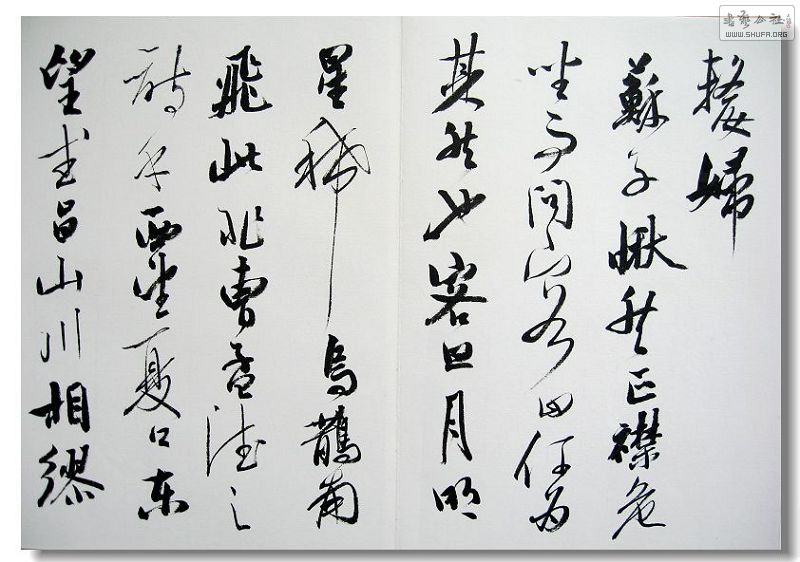 嫠婦
蘇子愀然正襟危
坐而問客曰何為
其然也客曰月明
星稀烏鵲南
飛此非曹孟德之
詩乎西望夏口東
望武昌山川相繆
書藝公社
WWW.SHUFA.ORG